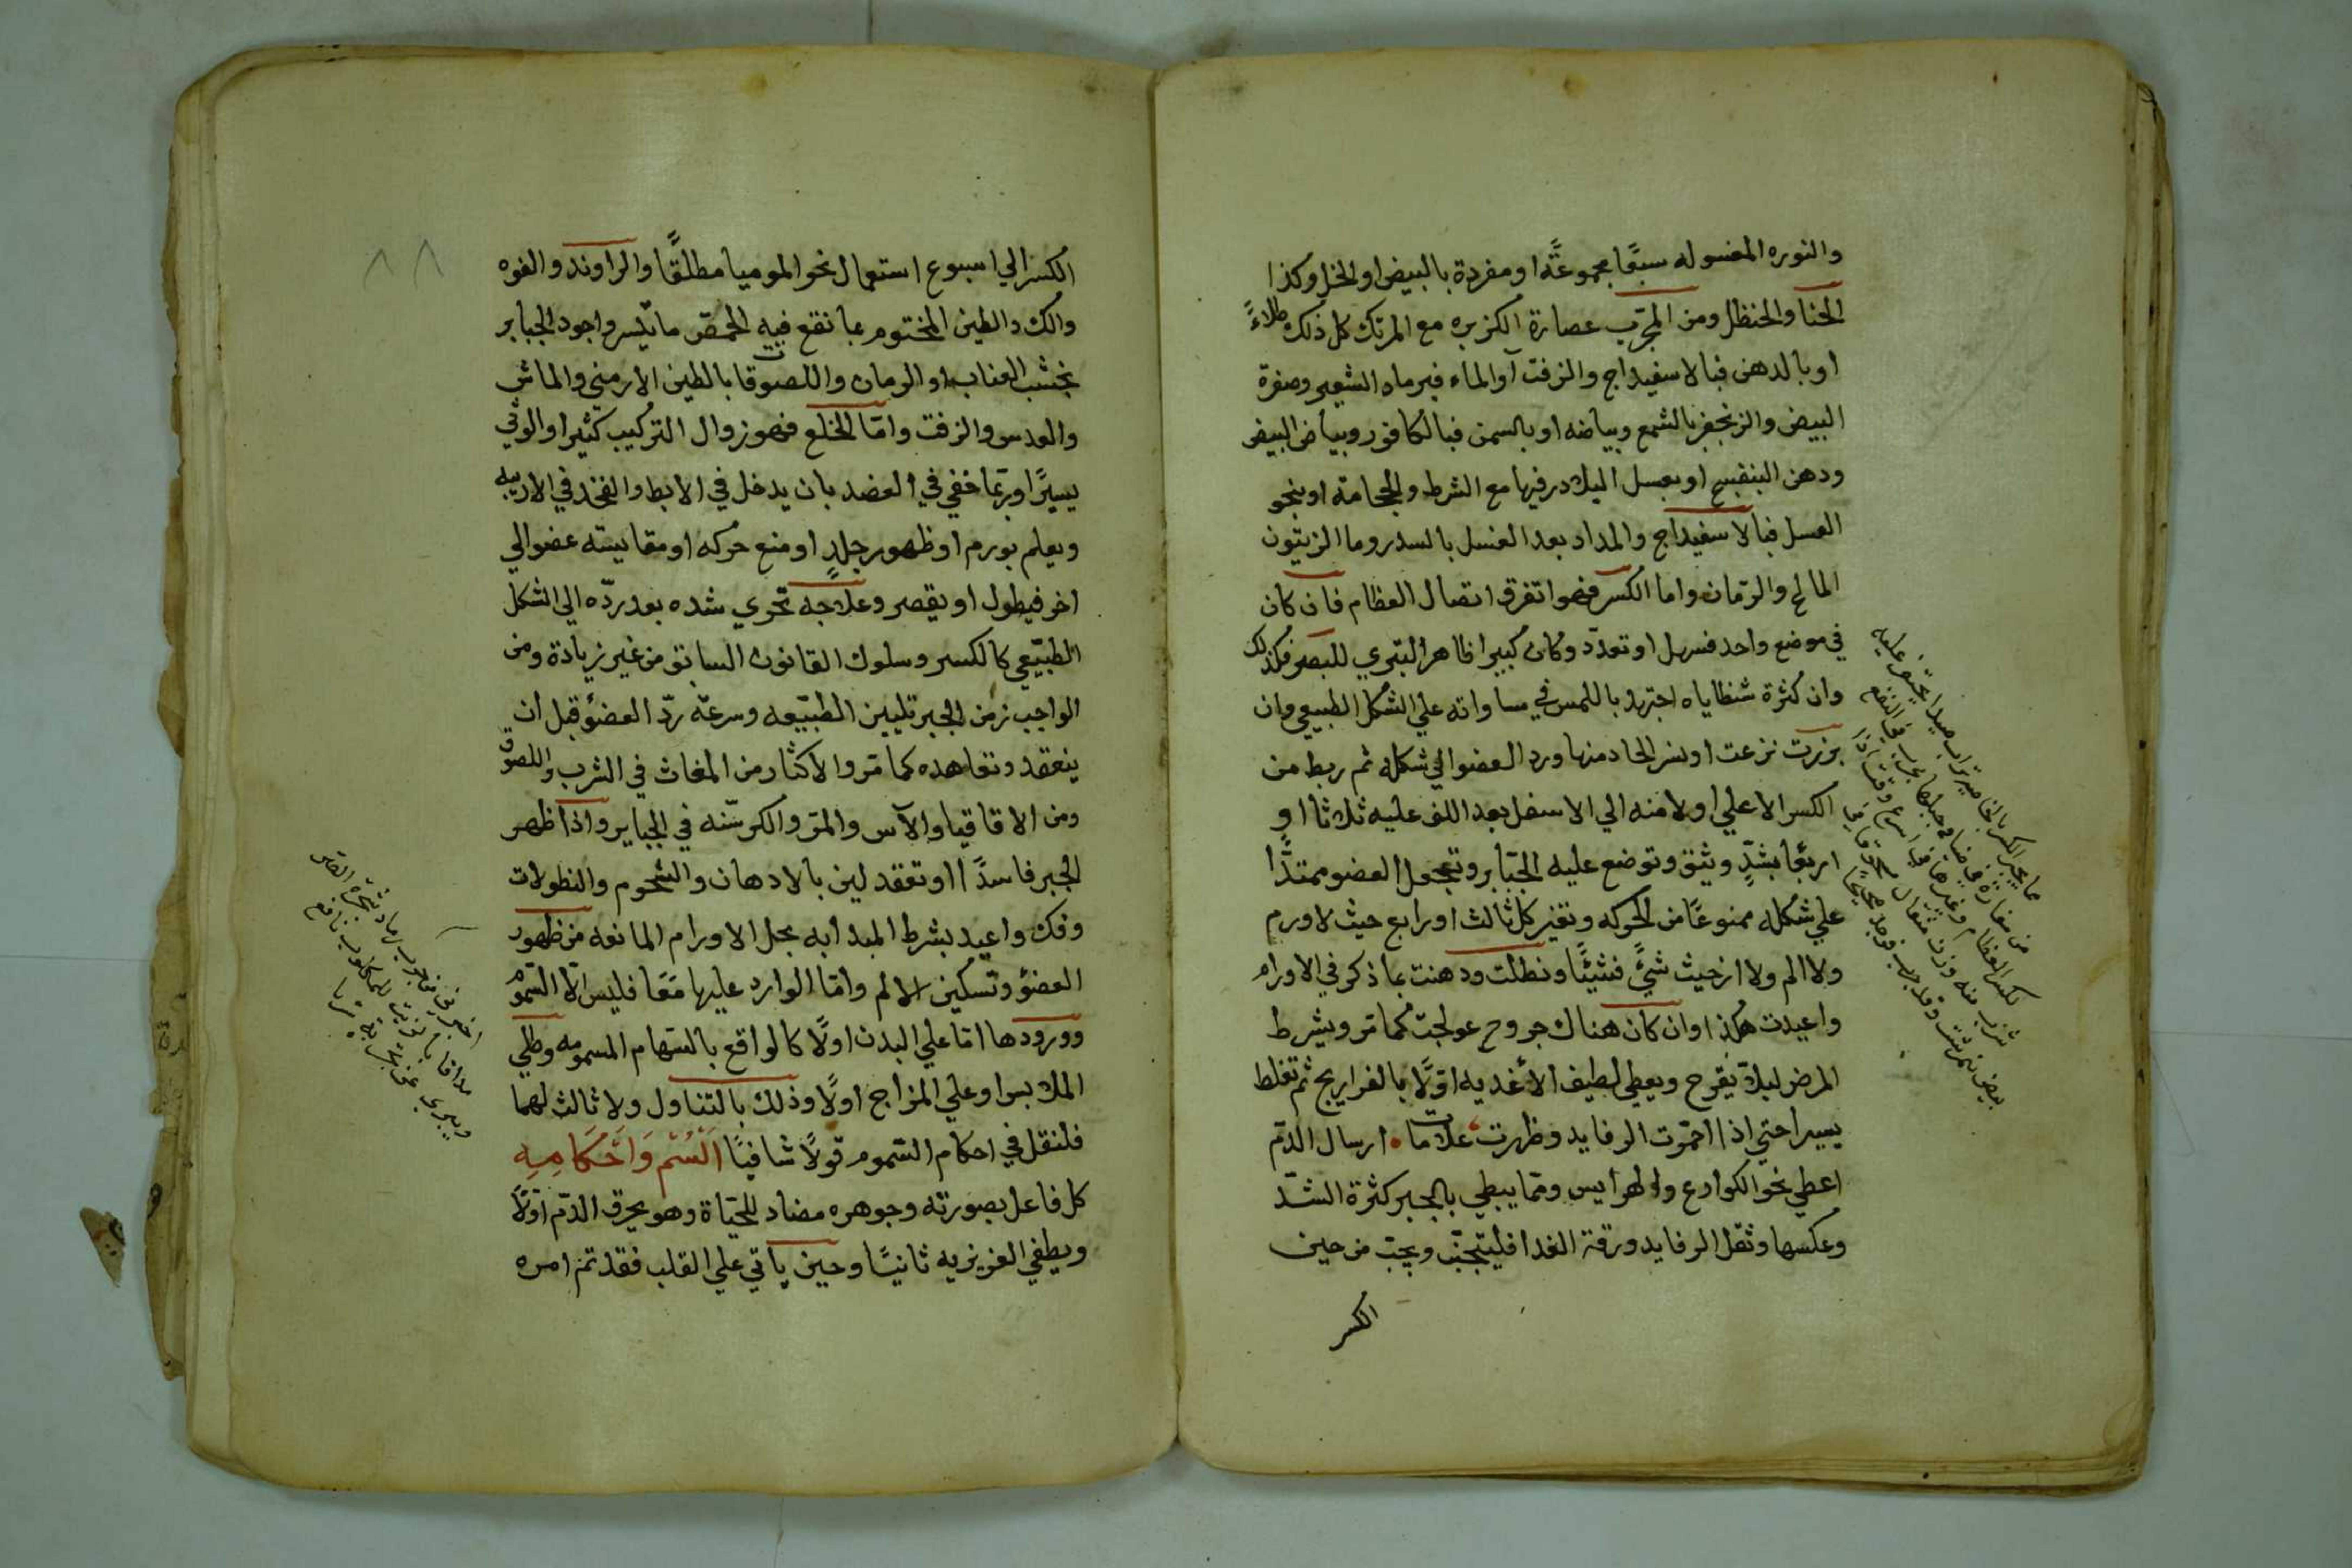 والنوره المغسوله سبعًا مجموعةً او مفردة بالبيض او الخل وكذا
الحنا والحنظل ومن المجرّب عصارة الكزبره مع المرتك كل ذلك طلاءً
او بالدهن فبالاسفيداج والزفت او الماء فبرماد الشعير وصفرة
البيض والزنجفر بالشمع وبياضه او بالسمن فبالكافور وبياض البيض
ودهن البنفسج او بعسل البلادر فبها مع الشرط والحجامة او بنحو
العسل فبالاسفيداج والمداد بعد الغسل بالسدر وما الزيتون
المالح والرمّان واما الكسر فهو اتفرق اتصال العظام فان كان
في موضع واحد فسهل او تعدّد وكان كبيرا ظاهر التبري للبصر فكذلك
وان كثرة شظاياه اجتهد باللمس في مساواته علي الشكل الطبيعي وان
برزت نزعت او نشر الحاد منها ورد العضو الي شكله ثم ربط من
الكسر الاعلي او لامنه الي الاسفل بعد اللف عليه ثلاثا او
اربعًا بشدٍّ وثيق وتوضع عليه الجبابر وتجعل العضو ممتدًّا
علي شكله ممنوعًا من الحركه وتغير كل ثالث او رابع حيث لا ورم
ولا الم ولا ارخيت شيءً فشيئًا ونطلت ودهنت بما ذكر في الاورام
واعيدت هكذا وان كان هناك جروح عولجت كما مر ويشرط
المرض ليلا يقرح ويعطي لطيف الأغديه اوّلًا بالفراريج ثم تغلظ
يسيرا حتي اذا احمرّت الرفايد وظهرت علامات ارسال الدّم
اعطي نحو الكوارع والهرايس وممّا يبطي بالجبر كثرة الشدّ
وعكسها وثقل الرفايد ورقة الغدا فليتجنّب ويجب من حين
الكسر
ما يجبر الكسر
من مغارة
كسر العظام وغيرها
شرب منه وزن مثقال
بيض نمرشت
الكسر الي اسبوع استعمال نحو الموميا مطلقًا والراوند والفوه
والك والطين المختوم بما نقع فيه الحمص ما تيسر واجود الجبابر
بخشب العناب او الرمان واللصوقات بالطين الارمني والماش
والعدس والزفت وامّا الخلع فهو زوال التركيب كثيرا والوثي
يسيرًا وربّما خفي في العضد بان يدخل في الابط والفخد في الاربيه
ويعلم بورم او ظهور جلدٍ او منع حركه او مقايسة عضو الي
اخر فيطول او يقصر وعلاجه تحري شده بعد ردّه الي الشكل
الطبيّعي كالكسر وسلوك القانون السابق من غير زيادة ومن
الواجب زمن الجبر تليين الطبيّعه وسرعة ردّ العضو قبل ان
ينعقد وتعاهده كما مر والاكثار من المغاث في الشرب واللصوق
ومن الاقاقيا والآس والمر والكرسّنه في الجبابر واذا ظهر
الجبر فاسدًا او تعقد لين بالادهان والشحوم والنطولات
وفك واعيد بشرط المبدأبه بحل الاورام المانعه من ظهور
العضو وتسكين الالم وامّا الوارد عليها معًا فليس الّا السّموم
وورودها امّا علي البدن اولًا كالواقع بالسّهام المسمومه وطلي
الملابس او علي المزاج اولًا وذلك بالتناول ولا ثالث لهما
فلنقل في احكام السّموم قولًا شافيًا اَلْسُّمْ وَاَحْكَامِهِ
كل فاعل بصورته وجوهره مضاد للحيَاة وهو يحرق الدّم اوّلًا
ويطفي الغريزيه ثانيًا وحين يأتي علي القلب فقد تم امره
٨٨